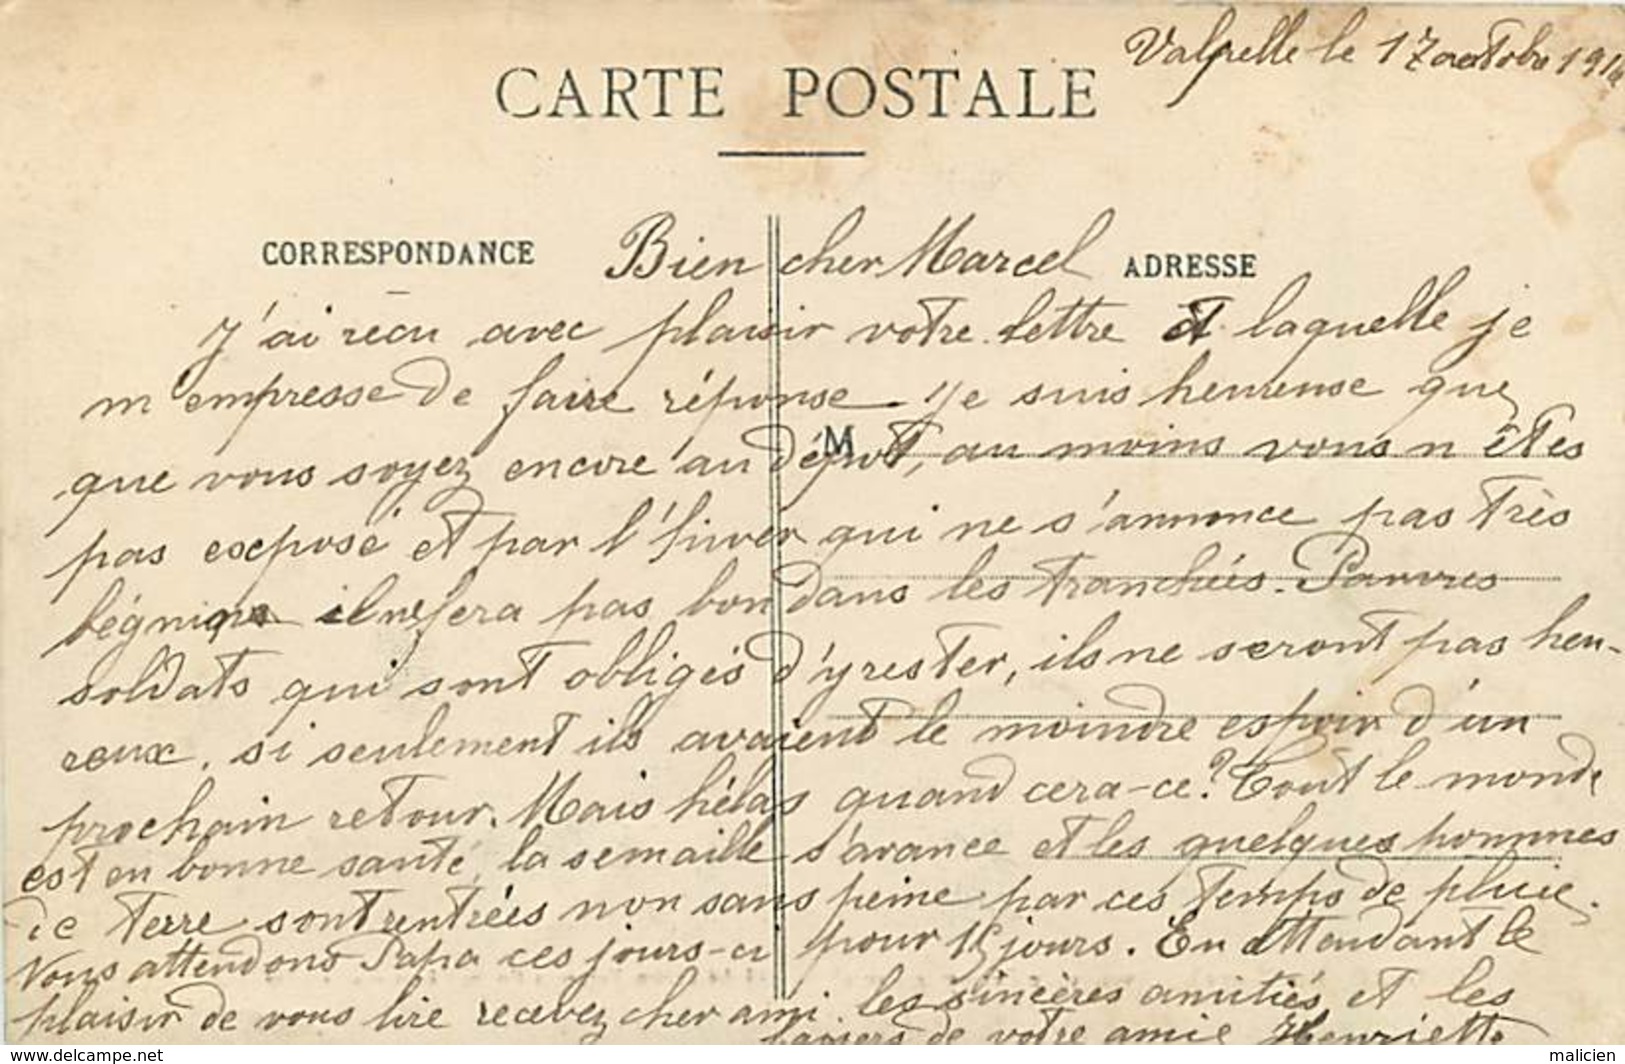 le 17 octobre 191
CARTE POSTALE
CORRESPONDANCE
ADRESSE
Bien cher Marcel
J'ai recu avec plaisir votre lettre à laquelle je
m'empresse de faire réponse. Je suis heureuse que
M
que vous soyez encore au dépot, au moins vous n'êtes
pas exposé et par l'hiver qui ne s'annonce pas très
il ne fera pas bon dans les tranchées. Pauvres
soldats qui sont obligés d'y rester, ils ne seront pas heu-
reux, si seulement ils avaient le moindre espoir d'un
prochain retour. Mais hélas quand cera-ce? Tout le monde
est en bonne santé, la semaille s'avance et les quelques pommes
de terre sont rentrées non sans peine par ces temps de pluie.
Nous attendons Papa ces jours-ci pour 15 jours. En attendant le
plaisir de vous lire recevez cher ami les sincères amitiés et les
baisers de votre amie Henriette
www.delcampe.net
malicien